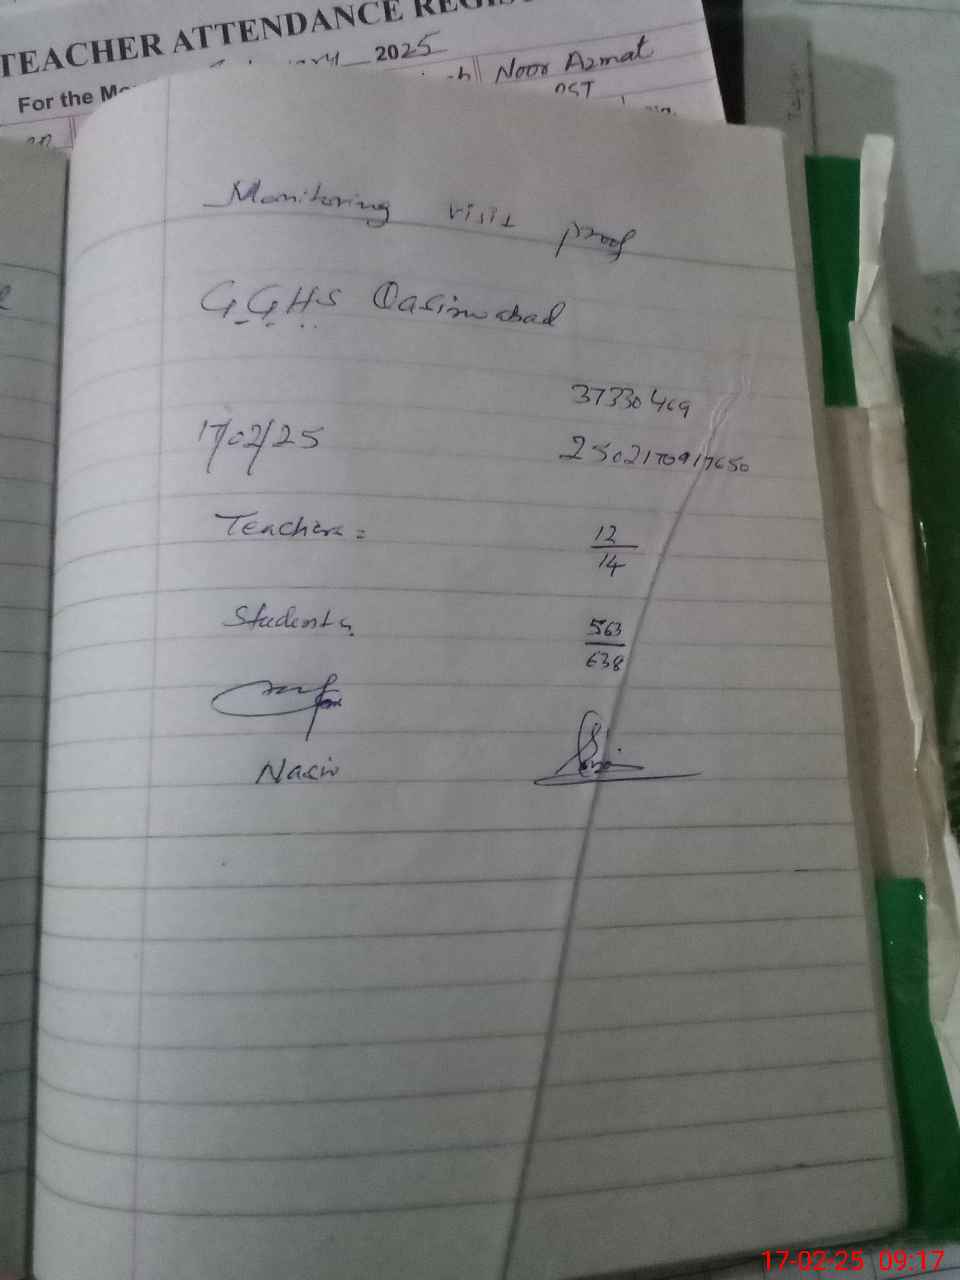 TEACHER ATTENDANCE REGIS
For the Mo 2025
Noor Azmat
PST
Monitoring visit proof
G.G.H.S Qasimabad
37330469
17/02/25
2502170917650
Teachers =
12
14
Students
563
638
Nasir
17-02-25 09:17